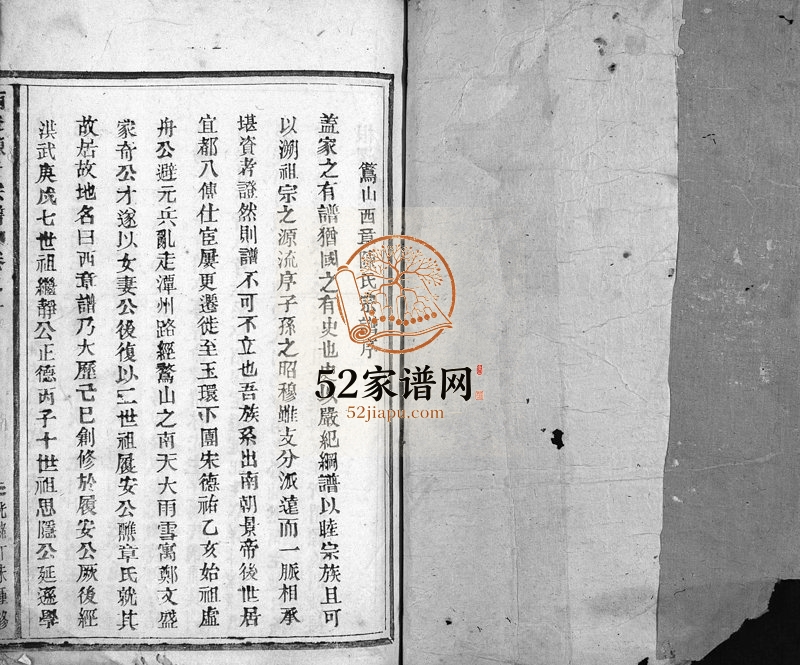 鶩山西章陳氏宗譜序
蓋家之有譜猶國之有史也史以嚴紀綱譜以睦宗族且可
以溯祖宗之源流序子孫之昭穆雖支分派蓮而一脈相承
堪資考證然則譜不可不立也吾族系出南朝景帝後世居
宜都八傳仕宦屢更遷徙至玉環下園宋德祐乙亥始祖虛
舟公避元兵亂走潭州路經鶩山之南天大雨雪寓鄭文盛
家奇公才遂以女妻公後復以三世祖履安公醮章氏就其
故居故地名曰西章譜乃大歷己巳創修於履安公厥後經
洪武庚戌七世祖繼靜公正德丙子十世祖思隱公延逐學
52家谱网
52jiapu.com